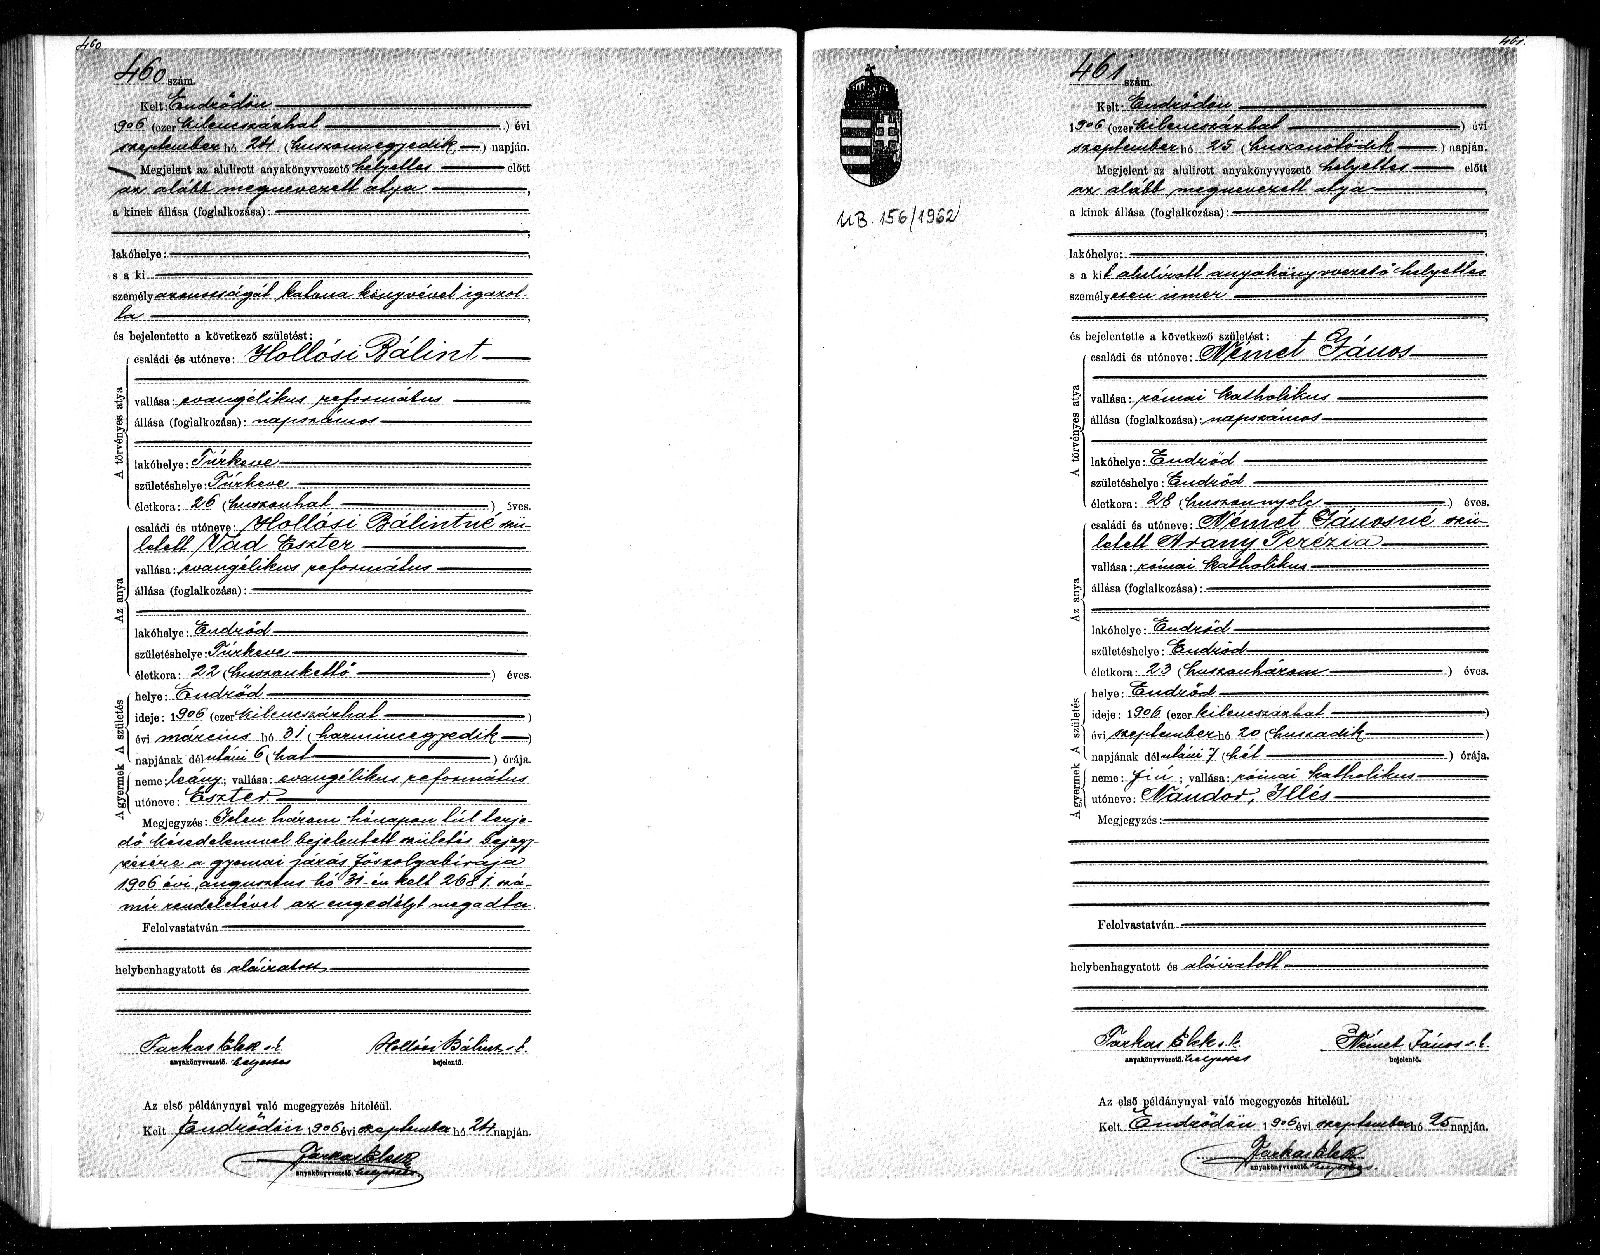 460
460 szám.
Kelt Endrődön
1906 (ezer kilencszázhat ) évi
szeptember hó 24. (huszonnegyedik ) napján.
Megjelent az alulirott anyakönyvvezető helyettes előtt
az alább megnevezett atya
a kinek állása (foglalkozása):
lakóhelye:
s a ki
személyazonosságát katona könyvével igazol-
ta
és bejelentette a következő születést:
A törvényes atya
családi és utóneve: Hollósi Bálint
vallása: evangélikus református
állása (foglalkozása): napszámos
lakóhelye: Túrkeve
születéshelye: Túrkeve
életkora: 26 (huszonhat ) éves.
Az anya
családi és utóneve: Hollósi Bálintné szü-
letett Vád Eszter
vallása: evangélikus református
állása (foglalkozása):
lakóhelye: Endrőd
születéshelye: Túrkeve
életkora: 22 (huszonkettő ) éves.
A születés
helye: Endrőd
ideje: 1906 (ezer kilencszázhat )
évi március hó 31 (harmincegyedik )
napjának délutáni 6 (hat ) órája.
A gyermek
neme: leány; vallása: evangélikus református
utóneve: Eszter
Megjegyzés: Jelen három hónapon túl terje-
dő késedelemmel bejelentett születés bejegy-
zésére a gyomai járás főszolgabírája
1906 évi augusztus hó 31-én kelt 268 j. szá-
mú rendeletével az engedélyt megadta.
Felolvastatván
helybenhagyatott és aláiratott
Farkas Elek s. k.
anyakönyvvezető helyettes
Hollósi Bálint s. k.
bejelentő.
Az első példánynyal való megegyezés hiteléül.
Kelt Endrődön 1906 évi szeptember hó 24 napján.
Farkas Elek
anyakönyvvezető helyettes
461.
UB. 156/1962
461 szám.
Kelt: Endrődön
1906 (ezer kilencszázhat ) évi
szeptember hó 25 (huszonötödik ) napján.
Megjelent az alulirott anyakönyvvezető helyettes előtt
az alább megnevezett atya
a kinek állása (foglalkozása):
lakóhelye:
s a kit alulírott anyakönyvvezető helyettes
személyesen ismer
és bejelentette a következő születést:
A törvényes atya
családi és utóneve: Német János
vallása: római katholikus
állása (foglalkozása): napszámos
lakóhelye: Endrőd
születéshelye: Endrőd
életkora: 28 (huszonnyolc ) éves.
Az anya
családi és utóneve: Német Jánosné szü-
letett Arany Terézia
vallása: római katholikus
állása (foglalkozása):
lakóhelye: Endrőd
születéshelye: Endrőd
életkora: 23 (huszonhárom ) éves.
A születés
helye: Endrőd
ideje: 1906 (ezer kilencszázhat )
évi szeptember hó 20 (huszadik )
napjának délutáni 7 (hét ) órája.
A gyermek
neme: fiú; vallása: római katholikus
utóneve: Nándor, Illés
Megjegyzés:
Felolvastatván
helybenhagyatott és aláiratott
Farkas Elek s. k.
anyakönyvvezető helyettes
Német János s. k.
bejelentő.
Az első példánynyal való megegyezés hiteléül.
Kelt. Endrődön 1906 évi szeptember hó 25 napján.
Farkas Elek
anyakönyvvezető helyettes.